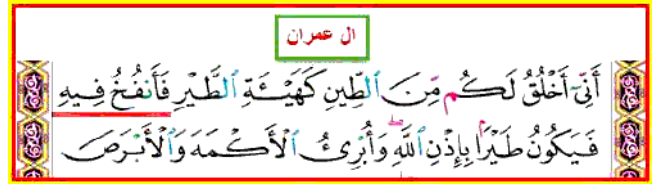 ال عمران
أَنِّىٓ أَخْلُقُ لَكُم مِّنَ ٱلطِّينِ كَهَيْـَٔةِ ٱلطَّيْرِ فَأَنفُخُ فِيهِ
فَيَكُونُ طَيْرًۢا بِإِذْنِ ٱللَّهِۖ وَأُبْرِئُ ٱلْأَكْمَهَ وَٱلْأَبْرَصَ